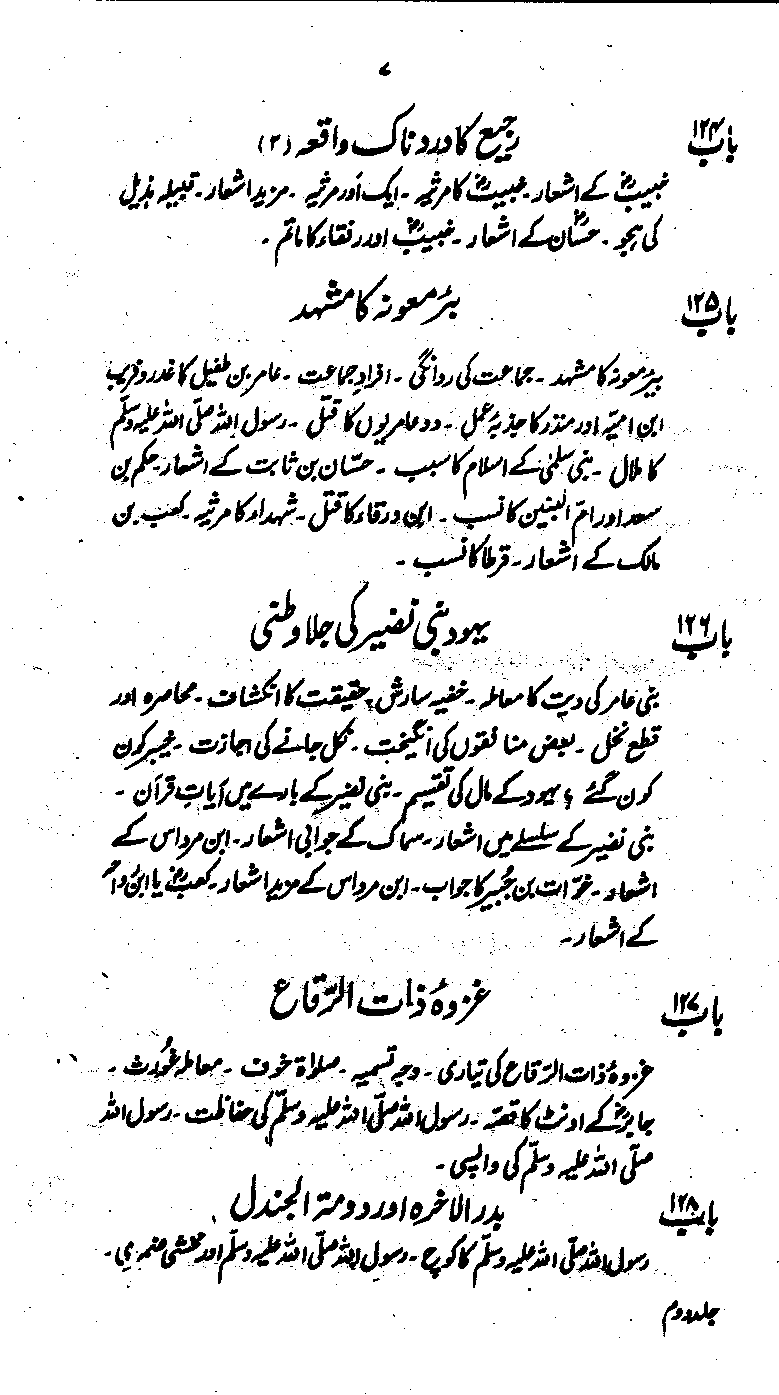 ۷
باب ۱۲۴
رجیع کا دردناک واقعہ (۲)
خبیبؓ کے اشعار ۔ خبیبؓ کا مرثیہ ۔ ایک اور مرثیہ ۔ مزید اشعار ۔ قبیلہ ہذیل
کی ہجو ۔ حسّانؓ کے اشعار ۔ خبیبؓ اور رفقاء کا ماتم ۔
باب ۱۲۵
بئر معونہ کا مشہد
بیر معونہ کا مشہد ۔ جماعت کی روانگی ۔ افرادِ جماعت ۔ عامر بن طفیل کا غدر و فریب
ابن امیّہ اور منذر کا جذبۂ عمل ۔ دو عامریوں کا قتل ۔ رسول اللہ صلّی اللہ علیہ وسلّم
کا ملال ۔ بنی سلمٰی کے اسلام کا سبب ۔ حسّان بن ثابت کے اشعار ۔ حکم بن
سعد اور امّ البنین کا نسب ۔ ابن ورقاء کا قتل ۔ شہداء کا مرثیہ ۔ کعب بن
مالک کے اشعار ۔ قرطا کا نسب ۔
باب ۱۲۶
یہود بنی نضیر کی جلا وطنی
بنی عامر کی دیت کا معاملہ ۔ خفیہ سازش ۔ حقیقت کا انکشاف ۔ محاصرہ اور
قطع نخل ۔ بعض منافقوں کی انگیخت ۔ نکل جانے کی اجازت ۔ خیبر کون
کون گئے ؟ یہود کے مال کی تقسیم ۔ بنی نضیر کے بارے میں آیاتِ قرآن ۔
بنی نضیر کے سلسلے میں اشعار ۔ سماک کے جوابی اشعار ۔ ابن مرداس کے
اشعار ۔ خوّات بن جُبیر کا جواب ۔ ابن مرداس کے مزید اشعار ۔ کعبؓ یا ابنُ رواحہؓ
کے اشعار ۔
باب ۱۲۷
غزوۂ ذات الرّقاع
غزوۂ ذات الرّقاع کی تیاری ۔ وجہِ تسمیہ ۔ صلاۃ خوف ۔ معاملہ غورث ۔
جابرؓ کے اونٹ کا قصّہ ۔ رسول اللہ صلّی اللہ علیہ وسلّم کی حفاظت ۔ رسول اللہ
صلّی اللہ علیہ وسلّم کی واپسی ۔
باب ۱۲۸
بدر الاخرہ اور دومۃ الجندل
رسول اللہ صلّی اللہ علیہ وسلّم کا کوچ ۔ رسول اللہ صلّی اللہ علیہ وسلّم اور مخشی ضمری ۔
جلد دوم